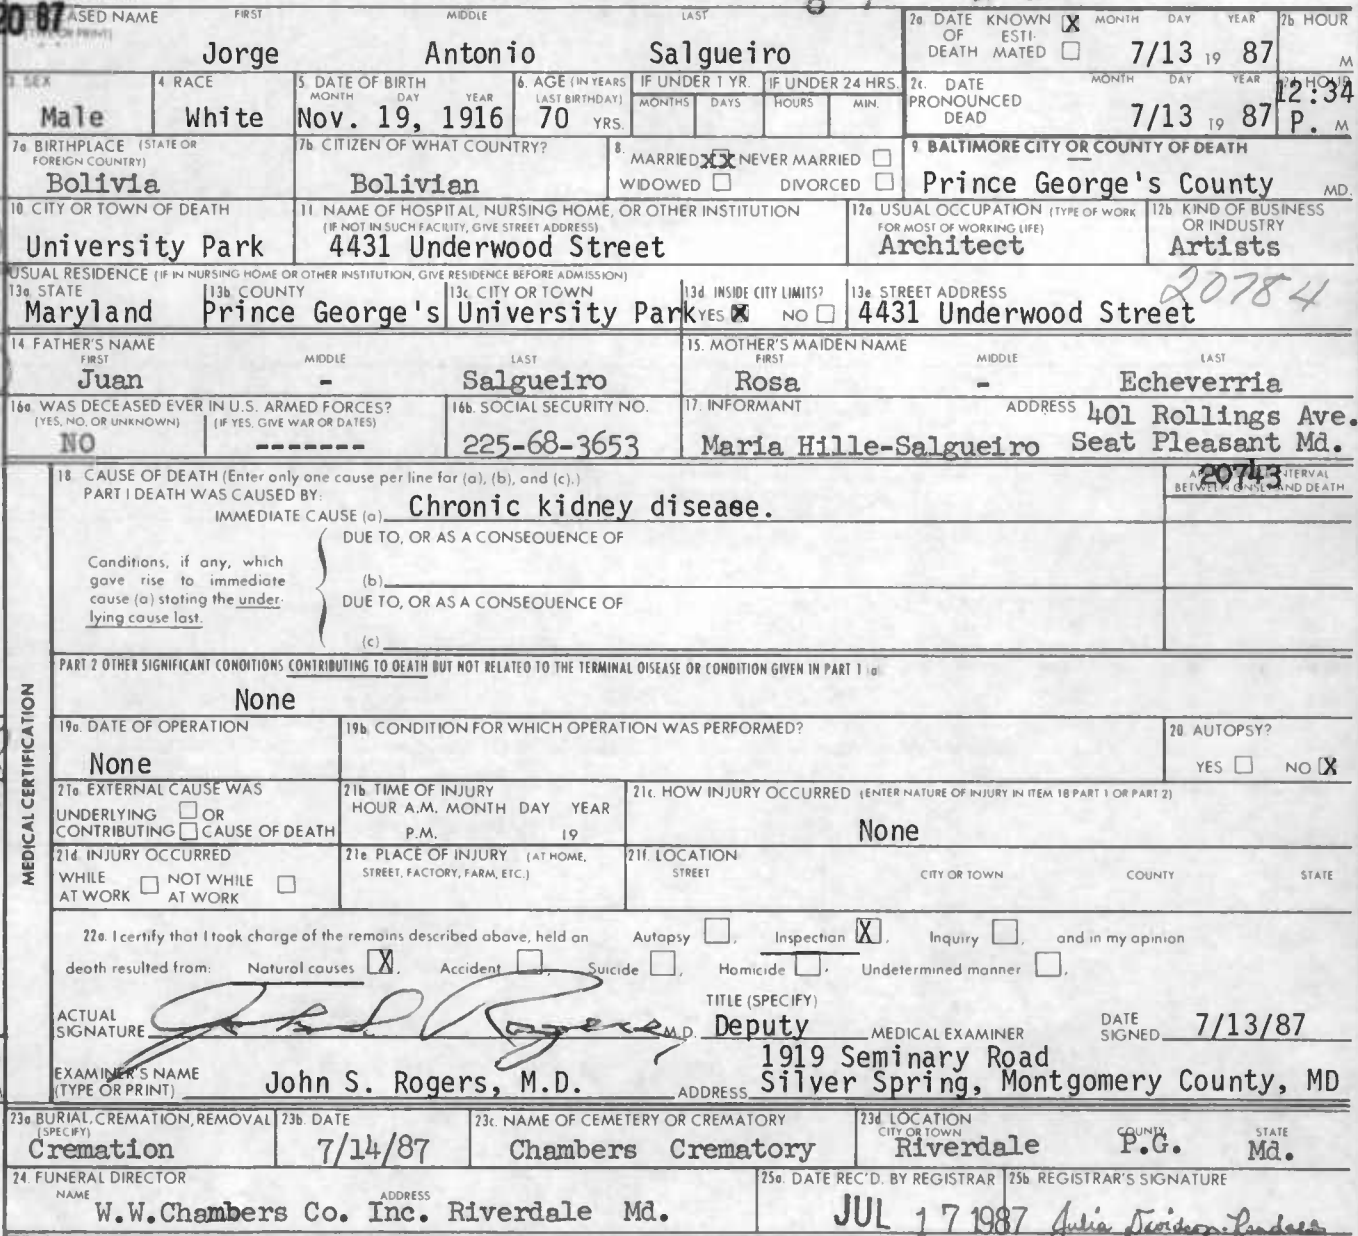 20 87
ASED NAME FIRST MIDDLE LAST
(TYPE OR PRINT)
Jorge Antonio Salgueiro
2a. DATE KNOWN X MONTH DAY YEAR
OF ESTI-
DEATH MATED
7/13 19 87
2b HOUR
M
3. SEX
Male
4 RACE
White
5. DATE OF BIRTH
MONTH DAY YEAR
Nov. 19, 1916
6. AGE (IN YEARS
LAST BIRTHDAY)
70 YRS.
IF UNDER 1 YR.
MONTHS DAYS
IF UNDER 24 HRS.
HOURS MIN.
2c. DATE MONTH DAY YEAR
PRONOUNCED
DEAD
7/13 19 87
HOUR
12:34
P. M
7a BIRTHPLACE (STATE OR
FOREIGN COUNTRY)
Bolivia
7b. CITIZEN OF WHAT COUNTRY?
Bolivian
8.
MARRIED XX NEVER MARRIED
WIDOWED DIVORCED
9. BALTIMORE CITY OR COUNTY OF DEATH
Prince George's County MD.
10. CITY OR TOWN OF DEATH
University Park
11. NAME OF HOSPITAL, NURSING HOME, OR OTHER INSTITUTION
(IF NOT IN SUCH FACILITY, GIVE STREET ADDRESS)
4431 Underwood Street
12a USUAL OCCUPATION (TYPE OF WORK
FOR MOST OF WORKING LIFE)
Architect
12b. KIND OF BUSINESS
OR INDUSTRY
Artists
USUAL RESIDENCE (IF IN NURSING HOME OR OTHER INSTITUTION, GIVE RESIDENCE BEFORE ADMISSION)
13a. STATE
Maryland
13b. COUNTY
Prince George's
13c. CITY OR TOWN
University Park
13d. INSIDE CITY LIMITS?
YES X NO
13e. STREET ADDRESS
4431 Underwood Street
20784
14. FATHER'S NAME
FIRST MIDDLE LAST
Juan - Salgueiro
15. MOTHER'S MAIDEN NAME
FIRST MIDDLE LAST
Rosa - Echeverria
16a. WAS DECEASED EVER IN U.S. ARMED FORCES?
(YES, NO, OR UNKNOWN) (IF YES, GIVE WAR OR DATES)
NO -------
16b. SOCIAL SECURITY NO.
225-68-3653
17. INFORMANT ADDRESS
Maria Hille-Salgueiro
401 Rollings Ave.
Seat Pleasant Md.
20743
18. CAUSE OF DEATH (Enter only one cause per line for (a), (b), and (c).)
PART I DEATH WAS CAUSED BY:
IMMEDIATE CAUSE (a) Chronic kidney disease.
INTERVAL
BETWEEN ONSET AND DEATH
DUE TO, OR AS A CONSEQUENCE OF
Conditions, if any, which
gave rise to immediate
cause (a) stating the under-
lying cause last.
(b)
DUE TO, OR AS A CONSEQUENCE OF
(c)
PART 2 OTHER SIGNIFICANT CONDITIONS CONTRIBUTING TO DEATH BUT NOT RELATED TO THE TERMINAL DISEASE OR CONDITION GIVEN IN PART 1 (a)
None
MEDICAL CERTIFICATION
19a. DATE OF OPERATION
None
19b. CONDITION FOR WHICH OPERATION WAS PERFORMED?
20. AUTOPSY?
YES NO X
21a. EXTERNAL CAUSE WAS
UNDERLYING OR
CONTRIBUTING CAUSE OF DEATH
21b. TIME OF INJURY
HOUR A.M. MONTH DAY YEAR
P.M. 19
21c. HOW INJURY OCCURRED (ENTER NATURE OF INJURY IN ITEM 18 PART 1 OR PART 2)
None
21d. INJURY OCCURRED
WHILE NOT WHILE
AT WORK AT WORK
21e. PLACE OF INJURY (AT HOME,
STREET, FACTORY, FARM, ETC.)
21f. LOCATION
STREET CITY OR TOWN COUNTY STATE
22a. I certify that I took charge of the remains described above, held an Autopsy , Inspection X , Inquiry , and in my opinion
death resulted from: Natural causes X , Accident , Suicide , Homicide , Undetermined manner .
ACTUAL
SIGNATURE John S Rogers M.D.
TITLE (SPECIFY)
Deputy MEDICAL EXAMINER
DATE
SIGNED 7/13/87
EXAMINER'S NAME
(TYPE OR PRINT) John S. Rogers, M.D.
ADDRESS
1919 Seminary Road
Silver Spring, Montgomery County, MD
23a. BURIAL, CREMATION, REMOVAL
(SPECIFY)
Cremation
23b. DATE
7/14/87
23c. NAME OF CEMETERY OR CREMATORY
Chambers Crematory
23d. LOCATION
CITY OR TOWN COUNTY STATE
Riverdale P.G. Md.
24. FUNERAL DIRECTOR
NAME ADDRESS
W.W.Chambers Co. Inc. Riverdale Md.
25a. DATE REC'D. BY REGISTRAR
JUL 17 1987
25b. REGISTRAR'S SIGNATURE
Julia Davidson-Randall